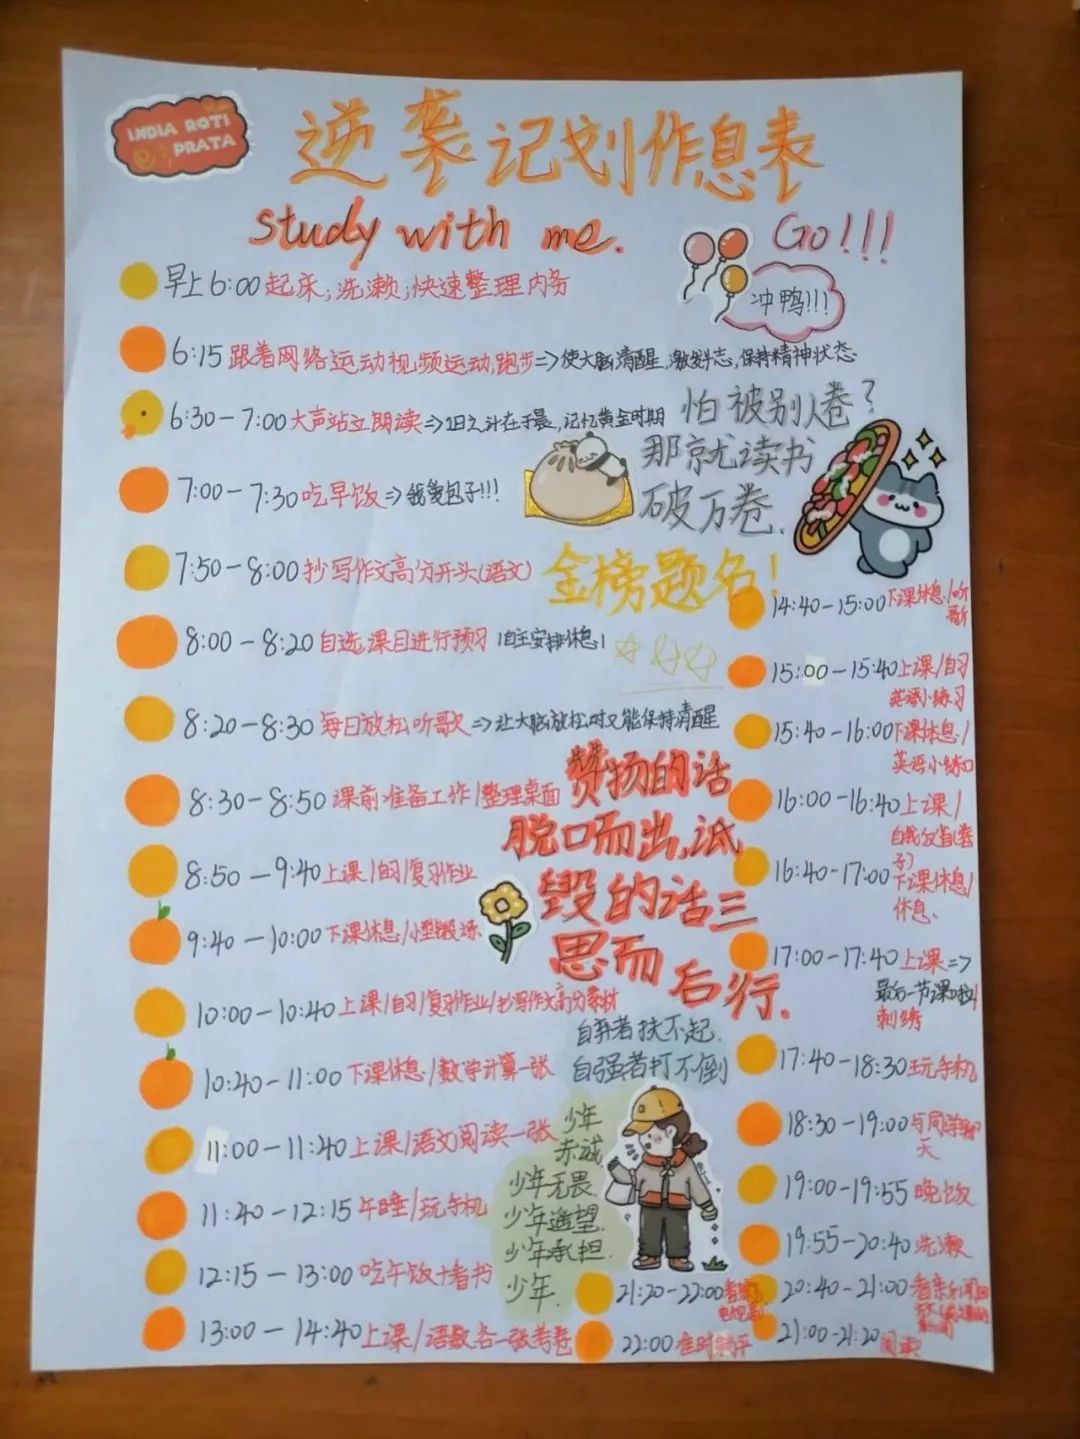 INDIA ROTI
PRATA
逆袭记划作息表
study with me.
Go!!!
冲鸭!!!
早上6:00起床;洗漱;快速整理内务
6:15跟着网络运动视频运动,跑步=>使大脑清醒,激发斗志,保持精神状态
6:30-7:00大声站立朗读=>1日之计在于晨,记忆黄金时期
怕被别人卷?
那就读书
破万卷.
7:00-7:30吃早饭=>我爱包子!!!
7:50-8:00抄写作文高分开头(语文)
金榜题名!
8:00-8:20自选课目进行预习
8:20-8:30每日放松听歌=>让大脑放松时又能保持清醒
8:30-8:50课前准备工作/整理桌面
赞扬的话
脱口而出,诋
毁的话三
思而后行.
8:50-9:40上课/自习/复习作业
9:40-10:00下课休息
10:00-10:40上课/自习/复习作业/抄写作文高分素材
自弃者扶不起.
自强者打不倒
10:40-11:00下课休息/数学计算一张
11:00-11:40上课/语文阅读一张
少年
赤诚
少年无畏.
少年遥望.
少年承担.
少年.
11:40-12:15午睡/玩手机
12:15-13:00吃午饭+看书
13:00-14:40上课/语数各一张考卷
14:40-15:00下课休息/听
歌
15:00-15:40上课/自习
英语小练习
15:40-16:00下课休息/
英语小练习
16:00-16:40上课/
16:40-17:00下课休息/
休息.
17:00-17:40上课=>
最后一节课啦/
刺绣
17:40-18:30玩手机
18:30-19:00与同学聊
天
19:00-19:55晚饭
19:55-20:40洗漱
20:40-21:00看
21:00-21:20阅读
21:20-22:00看
22:00准时躺平